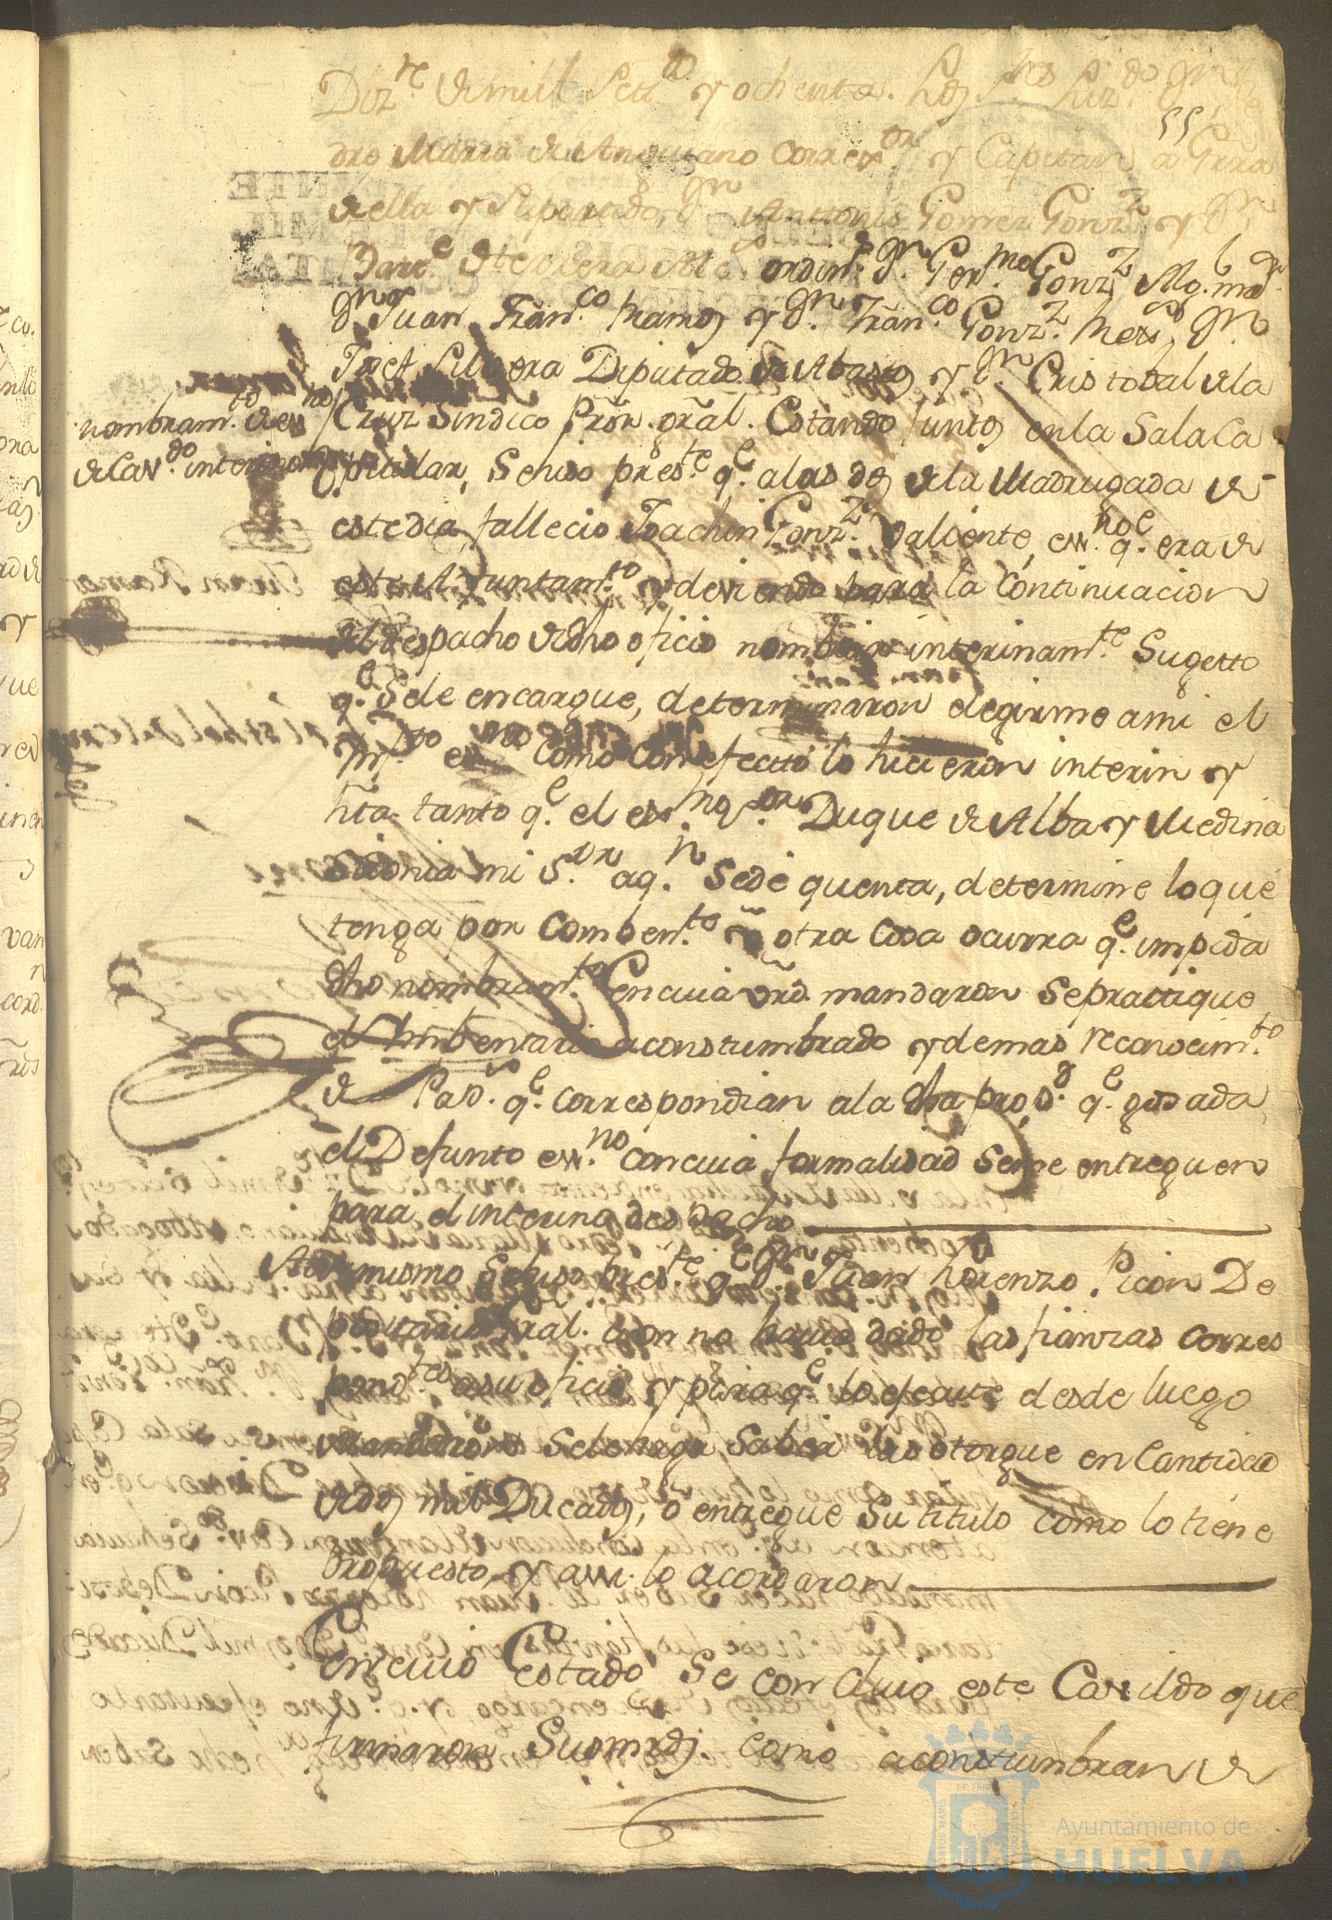 Diz.re de mill Setz.os y ochenta. los Sres Liz.do Dn Pe
55
dro Maria de Anguiano Correx.or y Capitan a Grra
della y su partido, Dn Antonio Gomez Gonz.z y Dn
Bart.e de Herrera Alc.s ordin.s Dn Ger.mo Gonz.z Alg.l ma.or
Dn Juan Fran.co Ramos y Dn Fran.co Gonz.z Dn
Josef Silbera Diputado de Abastos y Dn Cristobal de la
nombram.to de ess.no
de Cav.do interino
Cruz Sindico Pror. gral. Estando Juntos en la Sala Ca
pitular, Se hiso pres.te q.e a las dos de la Madrugada de
este dia fallecio Joachin Gonz.z Valiente, ess.no q.e era de
este Ayuntam.to y deviendo para la Continuacion
del despacho de dho oficio nombrar interinam.te Sugetto
q.e Se le encargue, determinaron elegirme a mi el
Inf.to ess.no como con efectto lo hicieron interin y
hta. tanto q.e el ex.mo S.or Duque de Alba y Medina
Sidonia mi S.or aq.n Se dé quenta, determine lo que
tenga por combeni.te otra cosa ocurra q.e impida
dho nombram.to en cuia vrd. mandaron Se prattique
el Imbentario acostumbrado y demas reconocim.to
de Pap.s q.e correspondian a la dha q.e
el Defunto ess.no con cuia formalidad Seme entreguen
para el interino despacho
Asimismo Se hiso pres.te q.e Dn Juan Lorenzo Picon De
positario Gral. aun no havia dado las fianzas corres
pond.tes a su oficio, y para q.e lo ejecute desde luego
mandaron Se le haga Saber las otorgue en Cantidad
de dos mil Ducados, ó entregue Su titulo como lo tiene
propuesto, y assi lo acordaron
En cuio estado Se concluio este Cavildo que
firmaron Susmrds. como acostumbran de
Ayuntamiento de
HUELVA